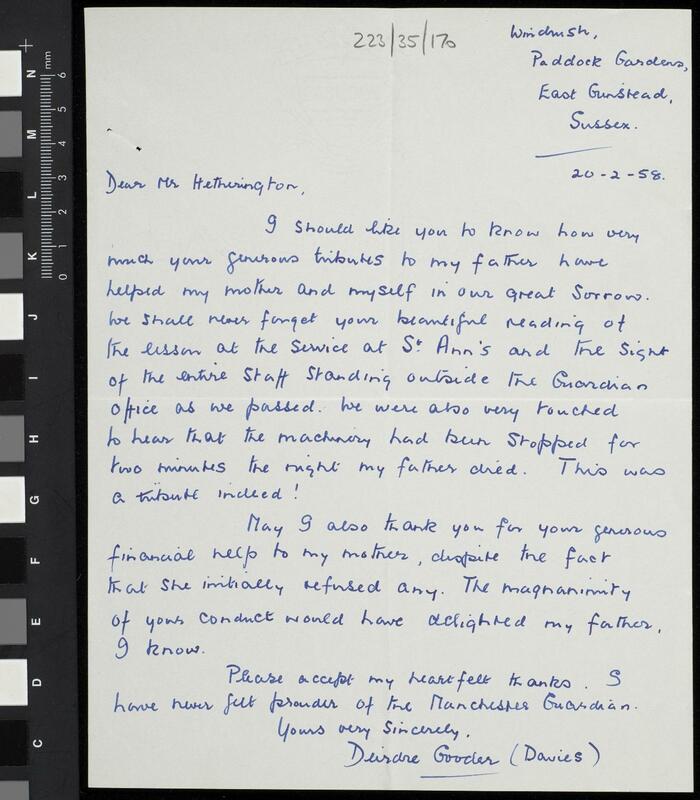 223/35/170
Windrush,
Paddock Gardens,
East Grinstead,
Sussex.
20-2-58.
Dear Mr Hetherington,
I should like you to know how very
much your generous tributes to my father have
helped my mother and myself in our great sorrow.
We shall never forget your beautiful reading of
the lesson at the service at St Ann's and the sight
of the entire staff standing outside the Guardian
office as we passed. We were also very touched
to hear that the machinery had been stopped for
two minutes the night my father died. This was
a tribute indeed!
May I also thank you for your generous
financial help to my mother, despite the fact
that she initially refused any. The magnanimity
of your conduct would have delighted my father,
I know.
Please accept my heartfelt thanks. I
have never felt prouder of the Manchester Guardian.
Yours very sincerely,
Deirdre Gooder (Davies)
mm
6
5
4
3
2
1
0
N
M
L
K
J
I
H
G
F
E
D
C